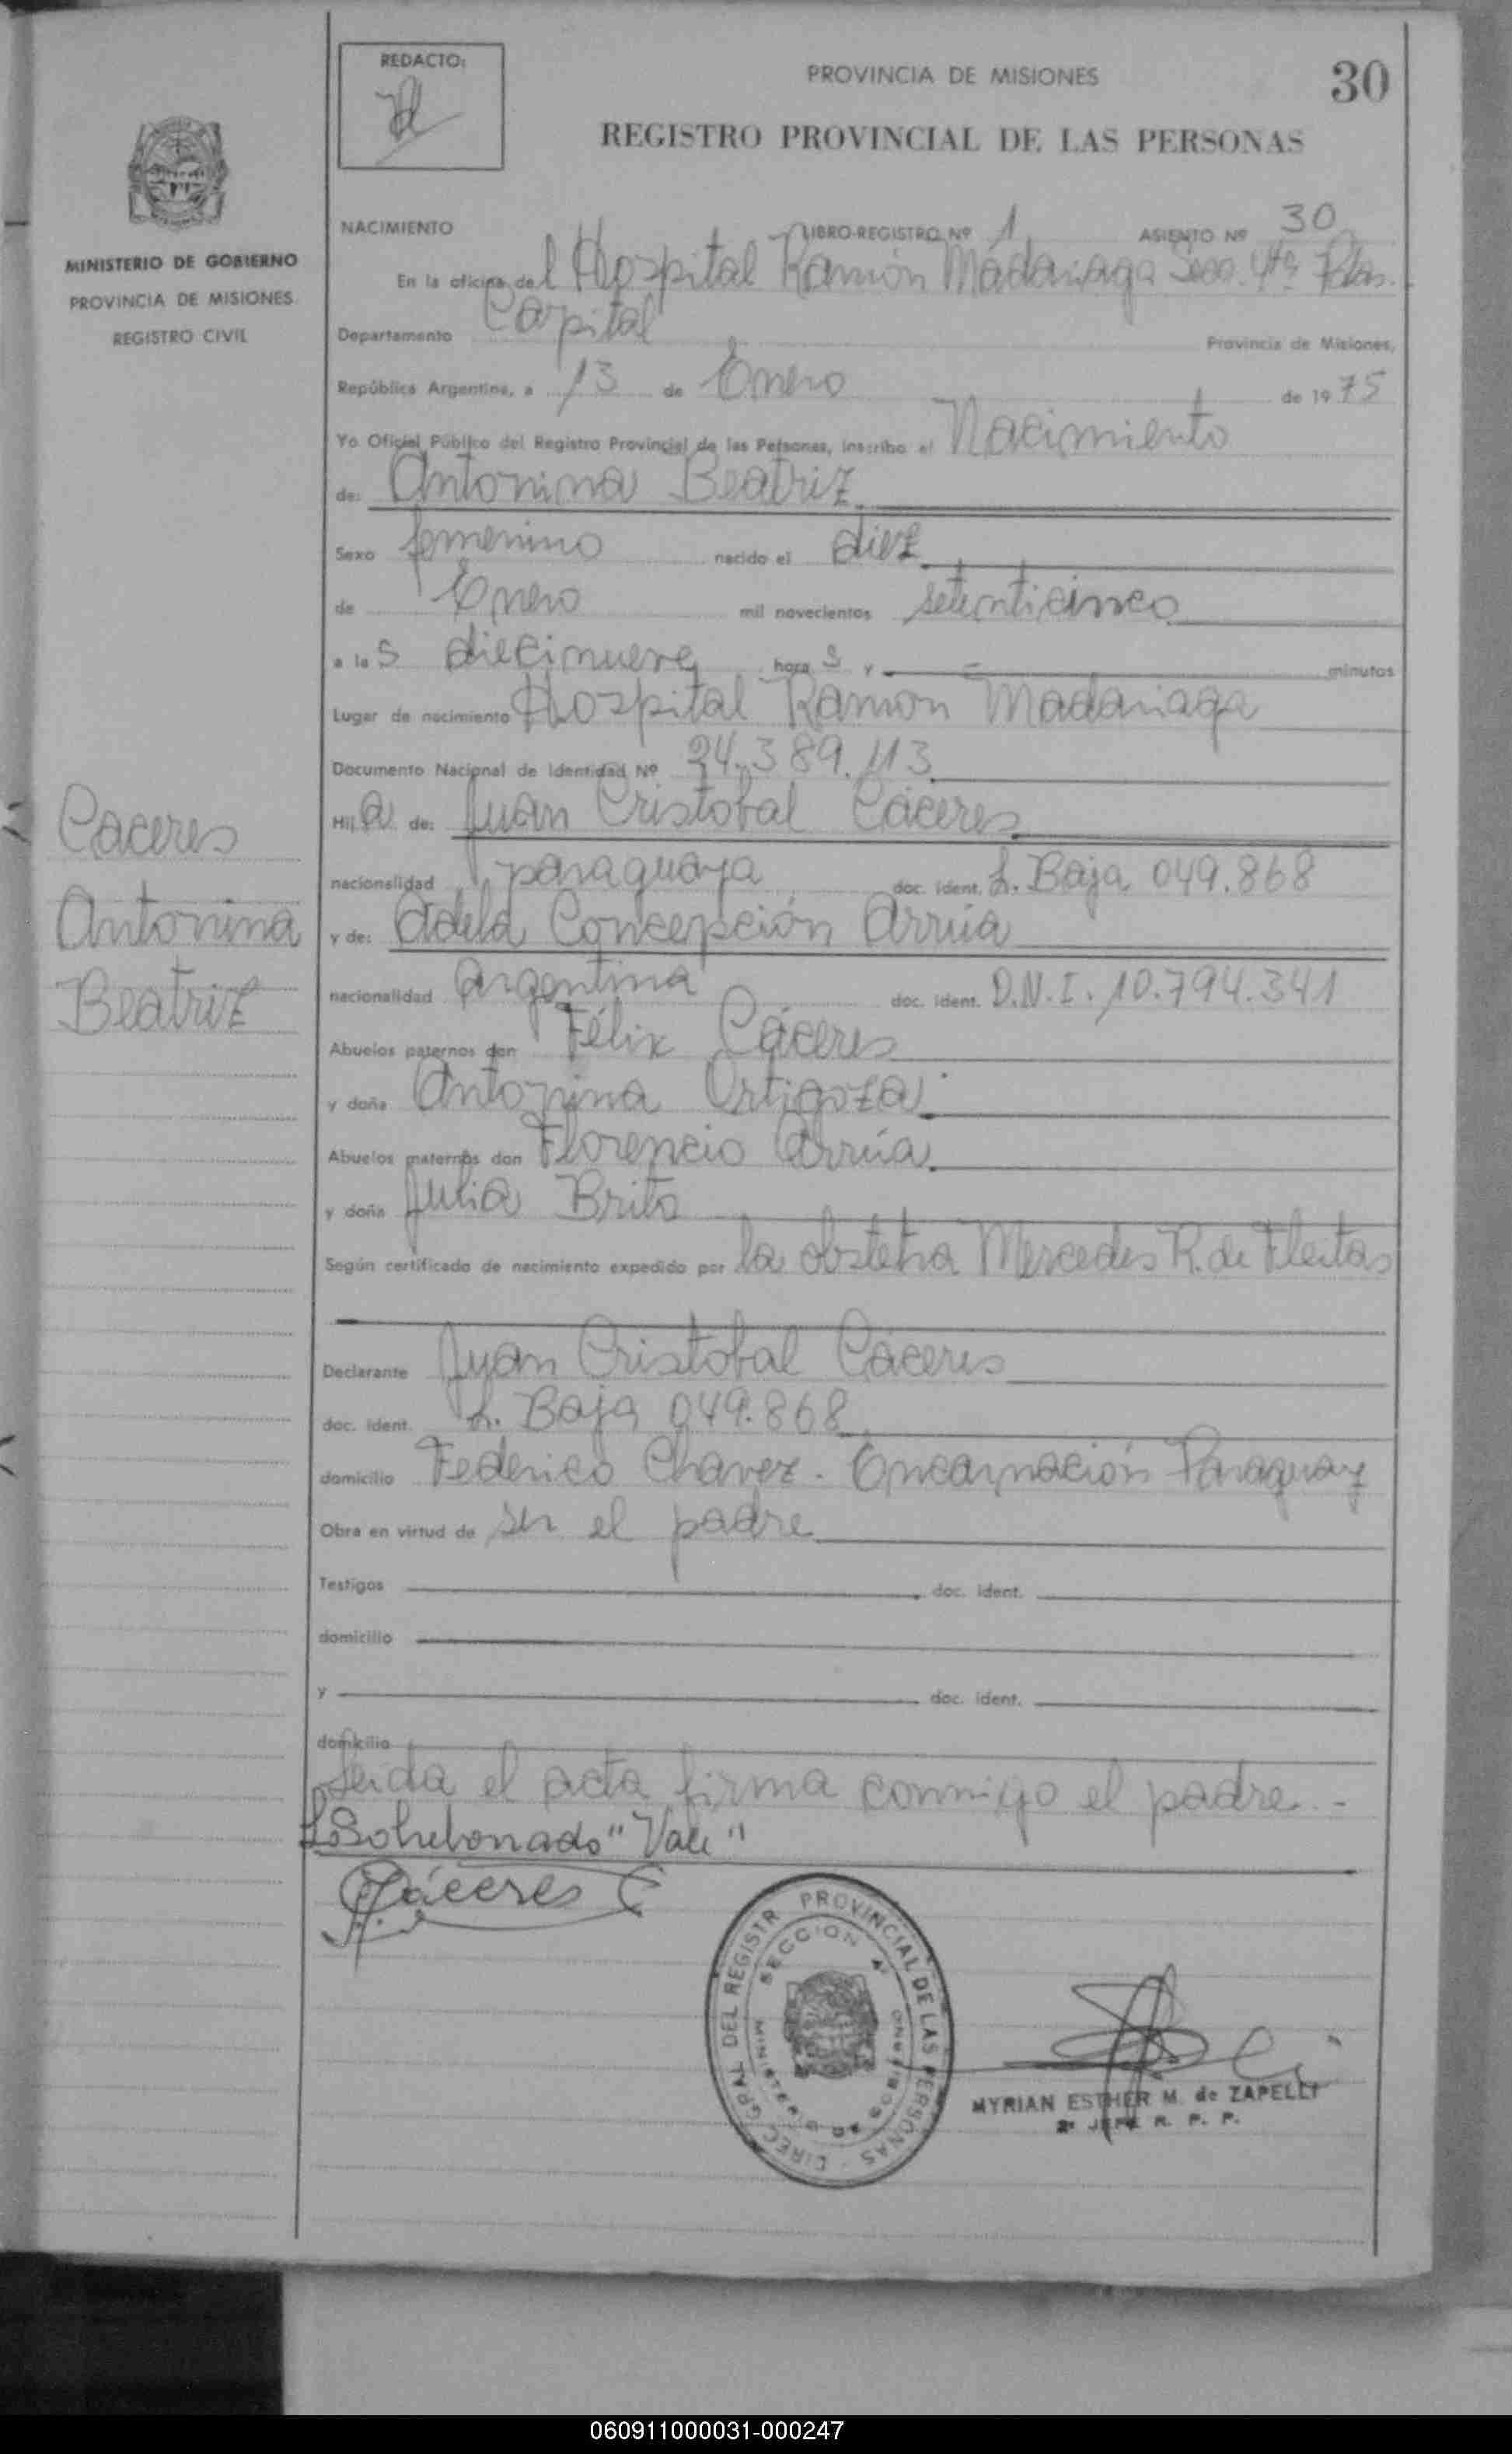 REDACTO:
PROVINCIA DE MISIONES
30
REGISTRO PROVINCIAL DE LAS PERSONAS
MINISTERIO DE GOBIERNO
PROVINCIA DE MISIONES
REGISTRO CIVIL
NACIMIENTO LIBRO-REGISTRO Nº 1 ASIENTO Nº 30
En la oficina del Hospital Ramón Madariaga Secc. 4ta Pdas.
Departamento Capital Provincia de Misiones,
República Argentina, a 13 de Enero de 1975
Yo Oficial Público del Registro Provincial de las Personas, inscribo el Nacimiento
de: Antonina Beatriz
Sexo femenino nacido el diez
de Enero mil novecientos setenticinco
a las diecinueve horas y minutos
Lugar de nacimiento Hospital Ramón Madariaga
Documento Nacional de Identidad Nº 24.389.113
Hija de: Juan Cristobal Cáceres
nacionalidad paraguaya doc. ident. L. Baja 049.868
y de: Adela Concepción Arrúa
nacionalidad argentina doc. ident. D.N.I. 10.794.341
Abuelos paternos don Félix Cáceres
y doña Antonina Ortigoza
Abuelos maternos don Florencio Arrúa
y doña Julia Brito
Según certificado de nacimiento expedido por la obstetra Mercedes R. de Fleitas
Declarante Juan Cristobal Cáceres
doc. ident. L. Baja 049.868
domicilio Federico Chavez - Encarnación Paraguay
Obra en virtud de ser el padre
Testigos doc. ident.
domicilio
y doc. ident.
domicilio
Leida el acta firma conmigo el padre.-
Sobreborrado "Vale"
Cáceres C
Caceres
Antonina
Beatriz
DIREC. GRAL DEL REGISTR PROVINCIAL DE LAS PERSONAS
SECCION
MINISTERIO DE GOBIERNO
MYRIAN ESTHER M. de ZAPELLI
2º JEFE R. P. P.
060911000031-000247